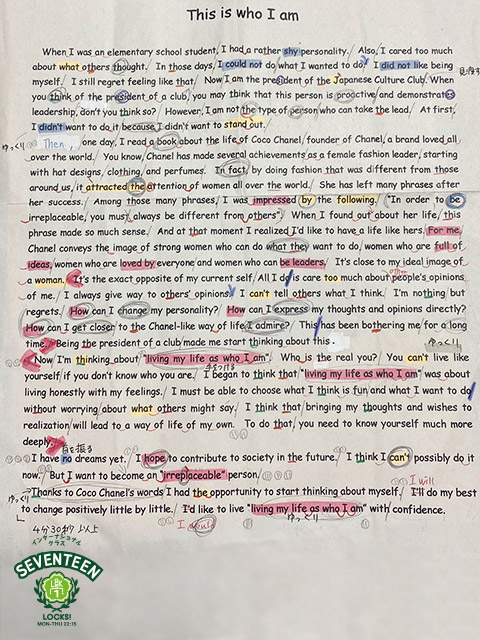 This is who I am
When I was an elementary school student, I had a rather shy personality. Also, I cared too much
about what others thought. In those days, I could not do what I wanted to do. I did not like being
myself. I still regret feeling like that. Now I am the president of the Japanese Culture Club. When
you think of the president of a club, you may think that this person is proactive and demonstrates
leadership, don't you think so? However, I am not the type of person who can take the lead. At first,
I didn't want to do it because I didn't want to stand out.
ゆっくり Then, one day, I read a book about the life of Coco Chanel, founder of Chanel, a brand loved all
over the world. You know, Chanel has made several achievements as a female fashion leader, starting
with hat designs, clothing, and perfumes. In fact, by doing fashion that was different from those
around us, it attracted the attention of women all over the world. She has left many phrases after
her success. Among those many phrases, I was impressed by the following. "In order to be
irreplaceable, you must always be different from others". When I found out about her life, this
phrase made so much sense. And at that moment I realized I'd like to have a life like hers. For me,
Chanel conveys the image of strong women who can do what they want to do, women who are full of
ideas, women who are loved by everyone and women who can be leaders. It's close to my ideal image of
a woman. It's the exact opposite of my current self. All I do is care too much about people's opinions
of me. I always give way to others' opinions. I can't tell others what I think. I'm nothing but
regrets. How can I change my personality? How can I express my thoughts and opinions directly?
How can I get closer to the Chanel-like way of life I admire? This has been bothering me for a long
time. Being the president of a club made me start thinking about this.
ゆっくり
Now I'm thinking about "living my life as who I am". Who is the real you? You can't live like
yourself if you don't know who you are. I began to think that "living my life as who I am" was about
living honestly with my feelings. I must be able to choose what I think is fun and what I want to do
without worrying about what others might say. I think that bringing my thoughts and wishes to
realization will lead to a way of life of my own. To do that, you need to know yourself much more
deeply.
I have no dreams yet. I hope to contribute to society in the future. I think I can't possibly do it
now. But I want to become an "irreplaceable" person.
I will
Thanks to Coco Chanel's words I had the opportunity to start thinking about myself. I'll do my best
ゆっくり
to change positively little by little. I'd like to live "living my life as who I am" with confidence.
I would
ゆっくり
4分30秒以上
インターナショナル
クラス
SEVENTEEN
LOCKS!
MON-THU 22:15